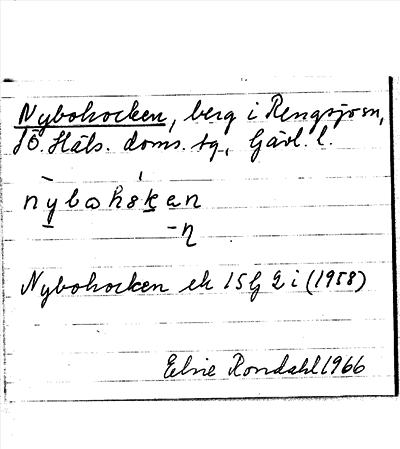 Nybohocken, berg i Rengsjö sn,
SÖ. Häls. doms. tg, Gävl. l.
nybohskan
-ŋ
Nybohocken ek 15G 2 i (1958)
Elsie Rondahl 1966